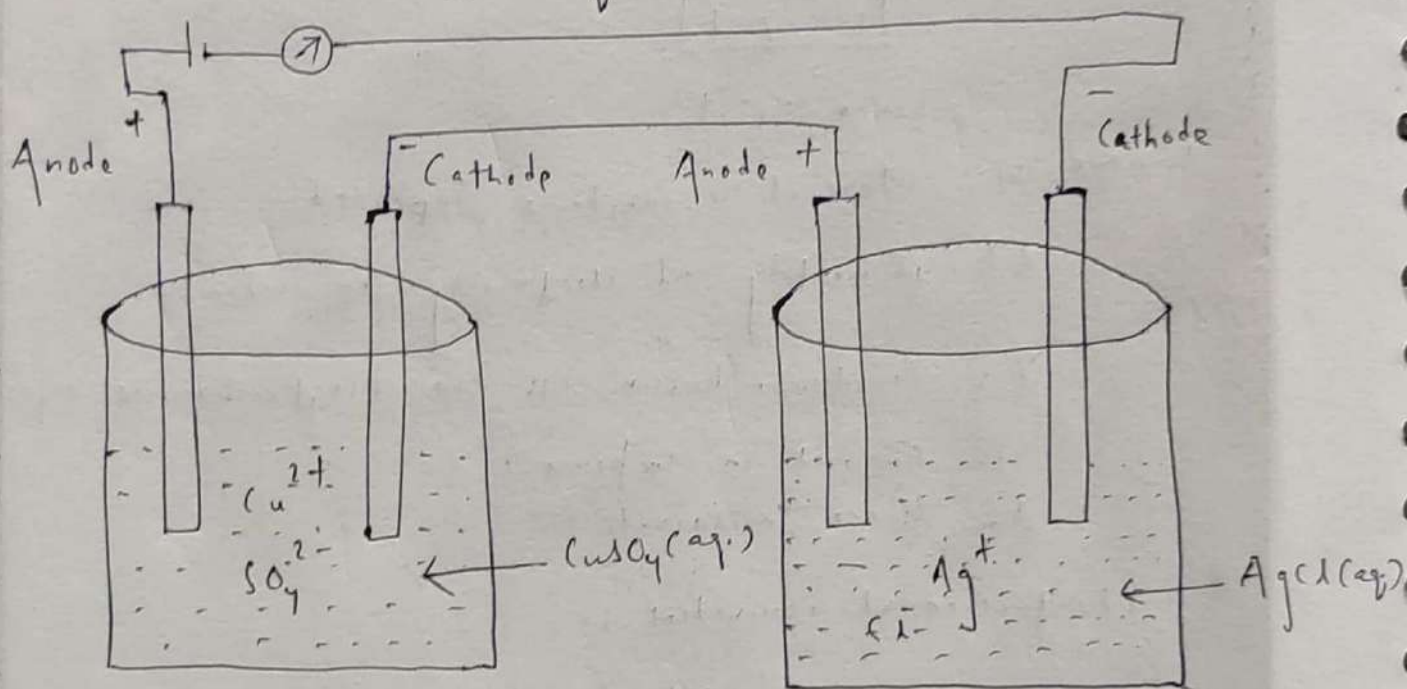 +
Anode
- Cathode
Anode +
-
Cathode
Cu2+
SO4 2-
CuSO4(aq.)
Ag+
Cl-
AgCl(aq.)